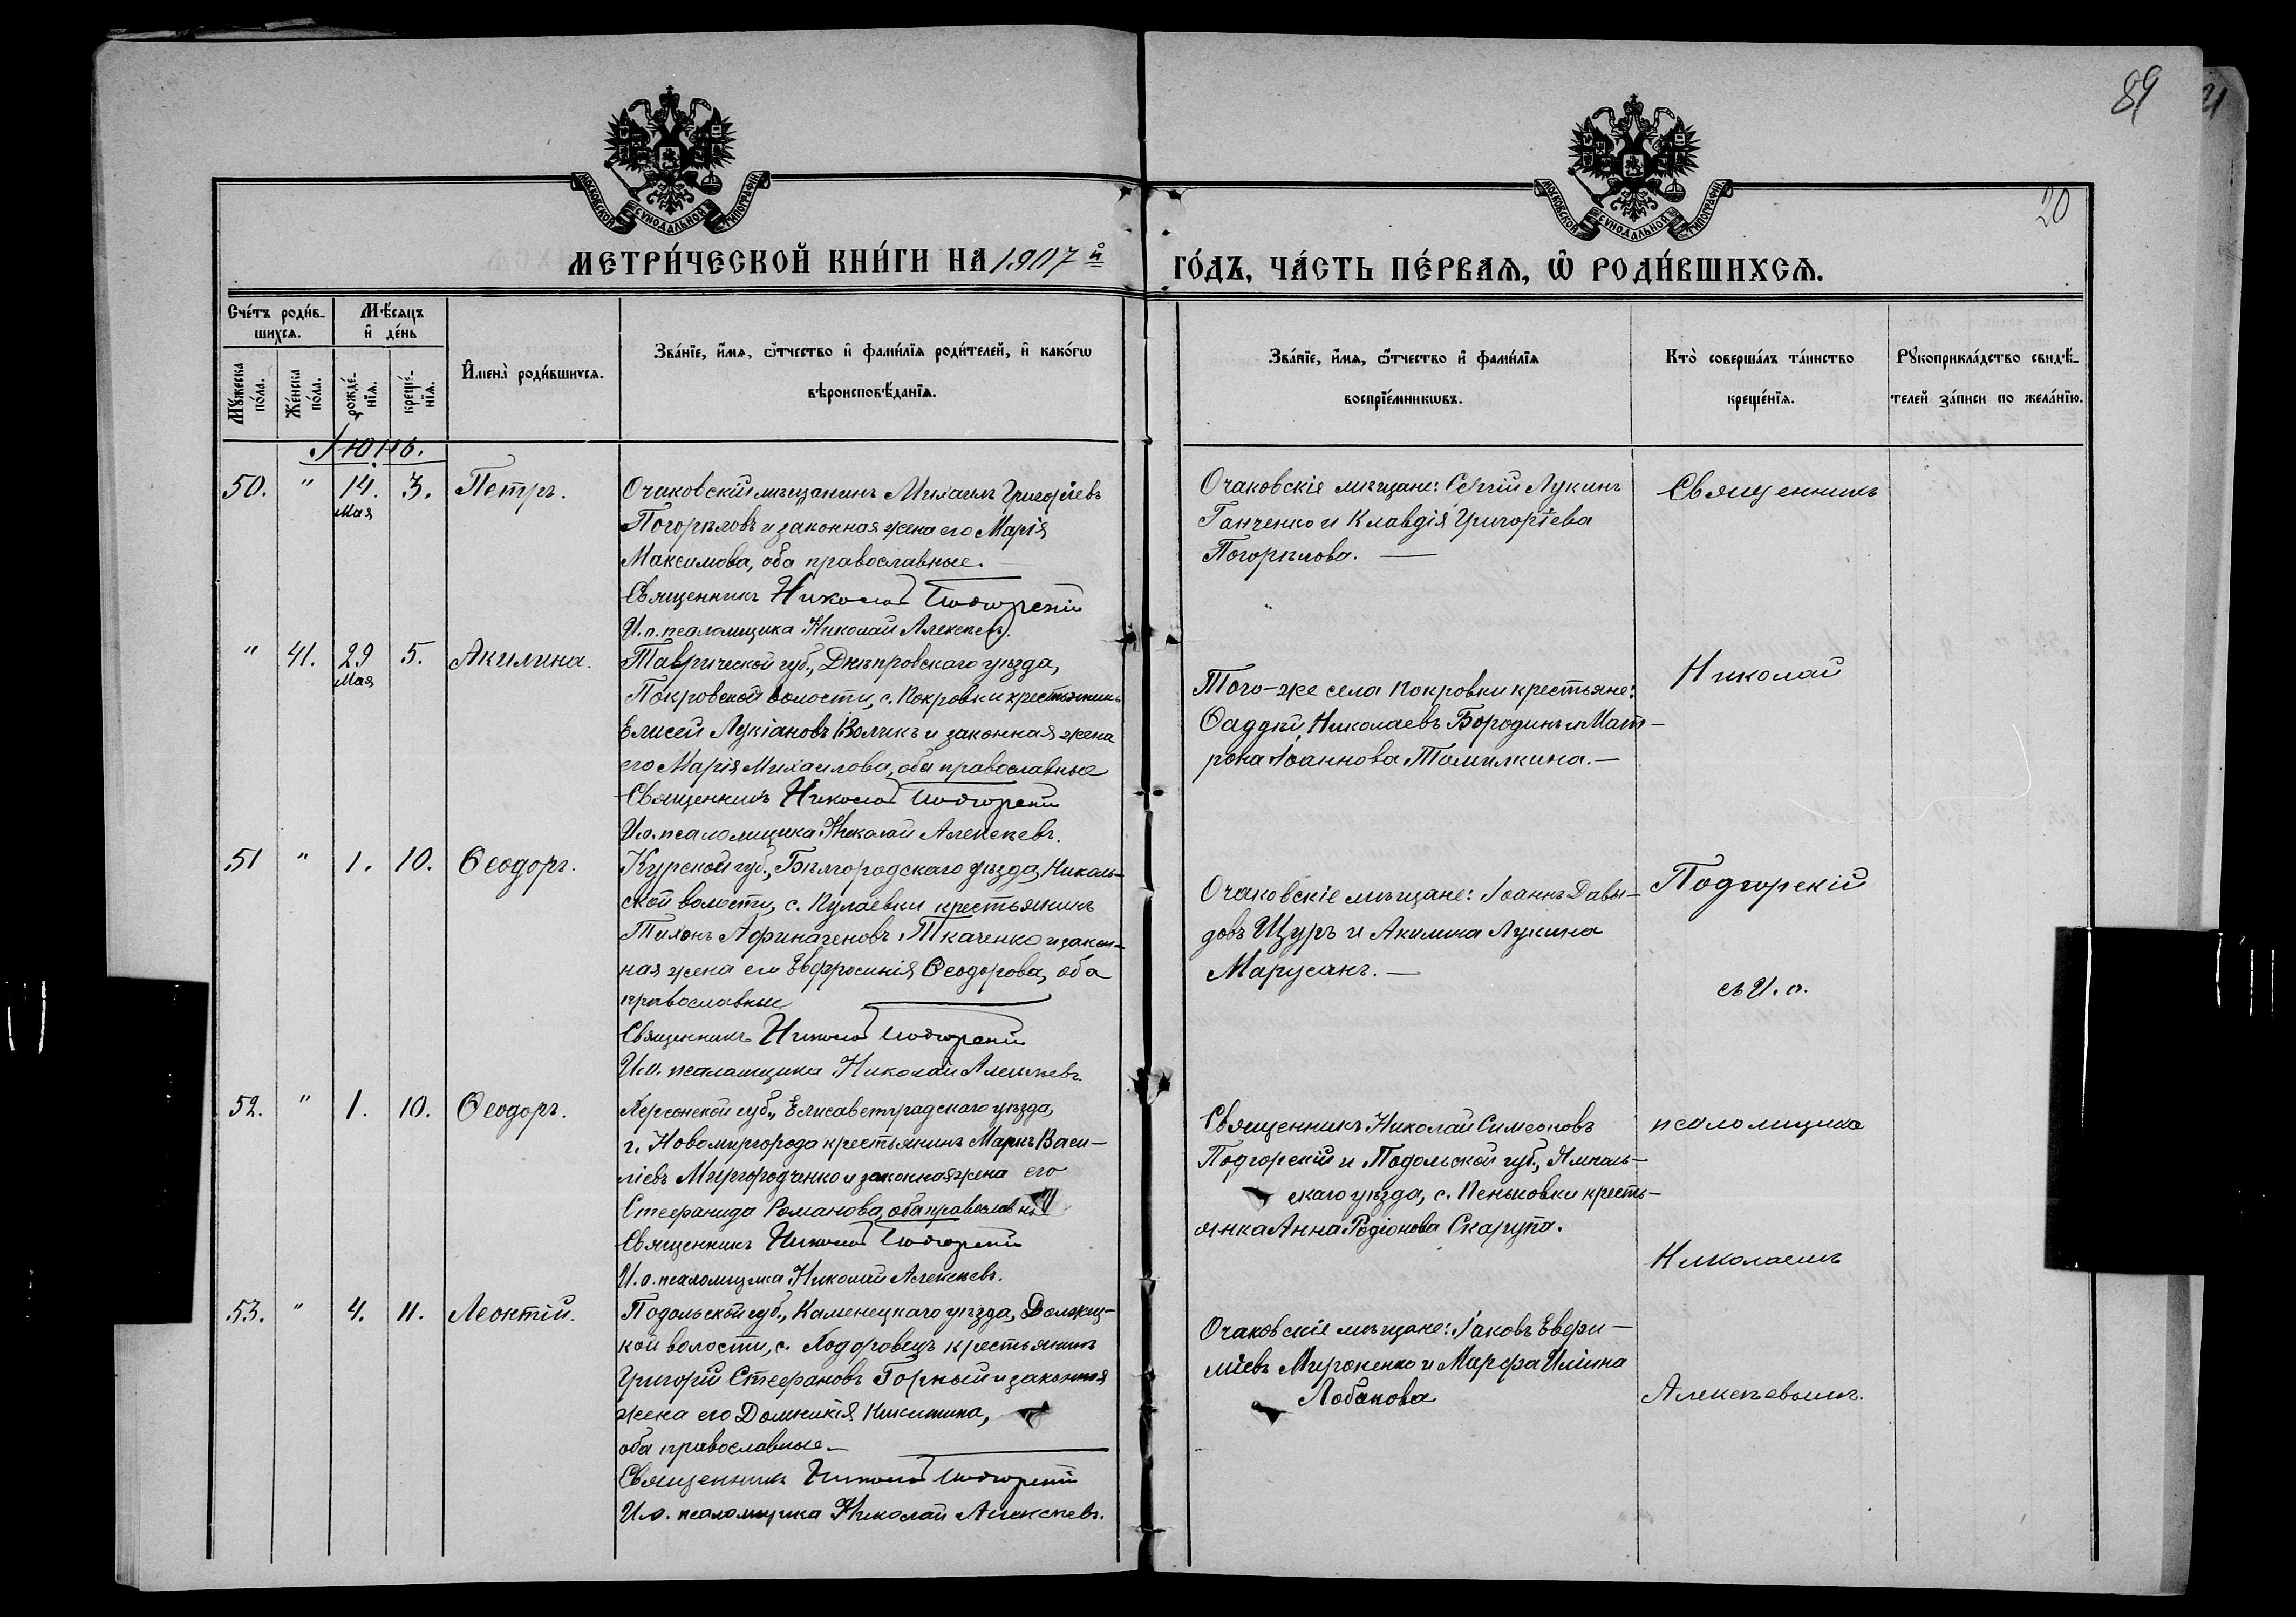 89
20
МОСКОВСКОЙ СѴНОДАЛЬНОЙ ТИПОГРАФІИ
МОСКОВСКОЙ СѴНОДАЛЬНОЙ ТИПОГРАФІИ
МЕТРИ́ЧЕСКОЙ КНИ́ГИ НА 1907 й
ГО́ДЪ, ЧА́СТЬ ПЕ́РВАЯ, Ѡ РОДИ́ВШИХСЯ.
Сче́тъ роди́в-
шихся.
Мѣ́сяцъ
и де́нь
Му́жеска
по́ла.
Же́нска
по́ла.
рожде́-
нїя.
креще́-
нїя.
Имена̀ роди́вшихся.
Зва́нїе, и́мя, ѻ́тчество и фами́лїя роди́телей, и како́гѡ
вѣроисповѣ́данїя.
Зва́нїе, и́мя, ѻ́тчество и фами́лїя
воспрїе́мникѡвъ.
Кто̀ соверша́лъ та́инство
креще́нїя.
Рꙋкоприкла́дство свидѣ́-
телей за́писи по жела́нїю.
Іюнь.
50. " 14. 3. Петръ.
Мая
Очаковскій мѣщанинъ Михаилъ Григоріевъ
Погорѣловъ и законная жена его Марія
Максимова, оба православные.
Священникъ Николай Подгорскій
И. о. псаломщика Николай Алексѣевъ.
Очаковскіе мѣщане: Сергій Лукинъ
Ганченко и Клавдія Григоріева
Погорѣлова. —
Священникъ
" 41. 29 5. Акилина.
Мая
Таврической губ., Днѣпровскаго уѣзда,
Покровской волости, с. Покровки крестьянинъ
Елисей Лукіановъ Воликъ и законная жена
его Марія Михаилова, оба православные
Священникъ Николай Подгорскій
И. о. псаломщика Николай Алексѣевъ.
Того-же села Покровки крестьяне:
Ѳаддей Николаевъ Бородинъ и Мат-
рона Іоаннова Томилкина. —
Николай
51 " 1. 10. Ѳеодоръ.
Курской губ., Бѣлгородскаго уѣзда, Николь-
ской волости, с. Пулаевки крестьянинъ
Тихонъ Афиногеновъ Ткаченко и закон-
ная жена его Евфросинія Ѳеодорова, оба
православные
Священникъ Николай Подгорскій
И. о. псаломщика Николай Алексѣевъ
Очаковскіе мѣщане: Іоаннъ Давы-
довъ Щуръ и Акилина Лукина
Марусанъ. —
Подгорскій
съ И. о.
52. " 1. 10. Ѳеодоръ.
Херсонской губ., Елисаветградскаго уѣзда,
г. Новомиргорода крестьянинъ Маркъ Васи-
ліевъ Миргородченко и законная жена его
Стефанида Романова, оба православные
Священникъ Николай Подгорскій
И. о. псаломщика Николай Алексѣевъ.
Священникъ Николай Симеоновъ
Подгорскій и Подольской губ., Ямполь-
скаго уѣзда, с. Пеньковки кресть-
янка Анна Родіонова Скарупа.
псаломщика
Николаемъ
53. " 4. 11. Леонтій.
Подольской губ., Каменецкаго уѣзда, Должец-
кой волости, с. Ходоровецъ крестьянинъ
Григорій Стефановъ Горный и законная
жена его Домникія Никитина,
оба православные —
Священникъ Николай Подгорскій
И. о. псаломщика Николай Алексѣевъ.
Очаковскіе мѣщане: Іаковъ Еври-
ліевъ Мироненко и Марфа Иліина
Лобанова
Алексѣевымъ.